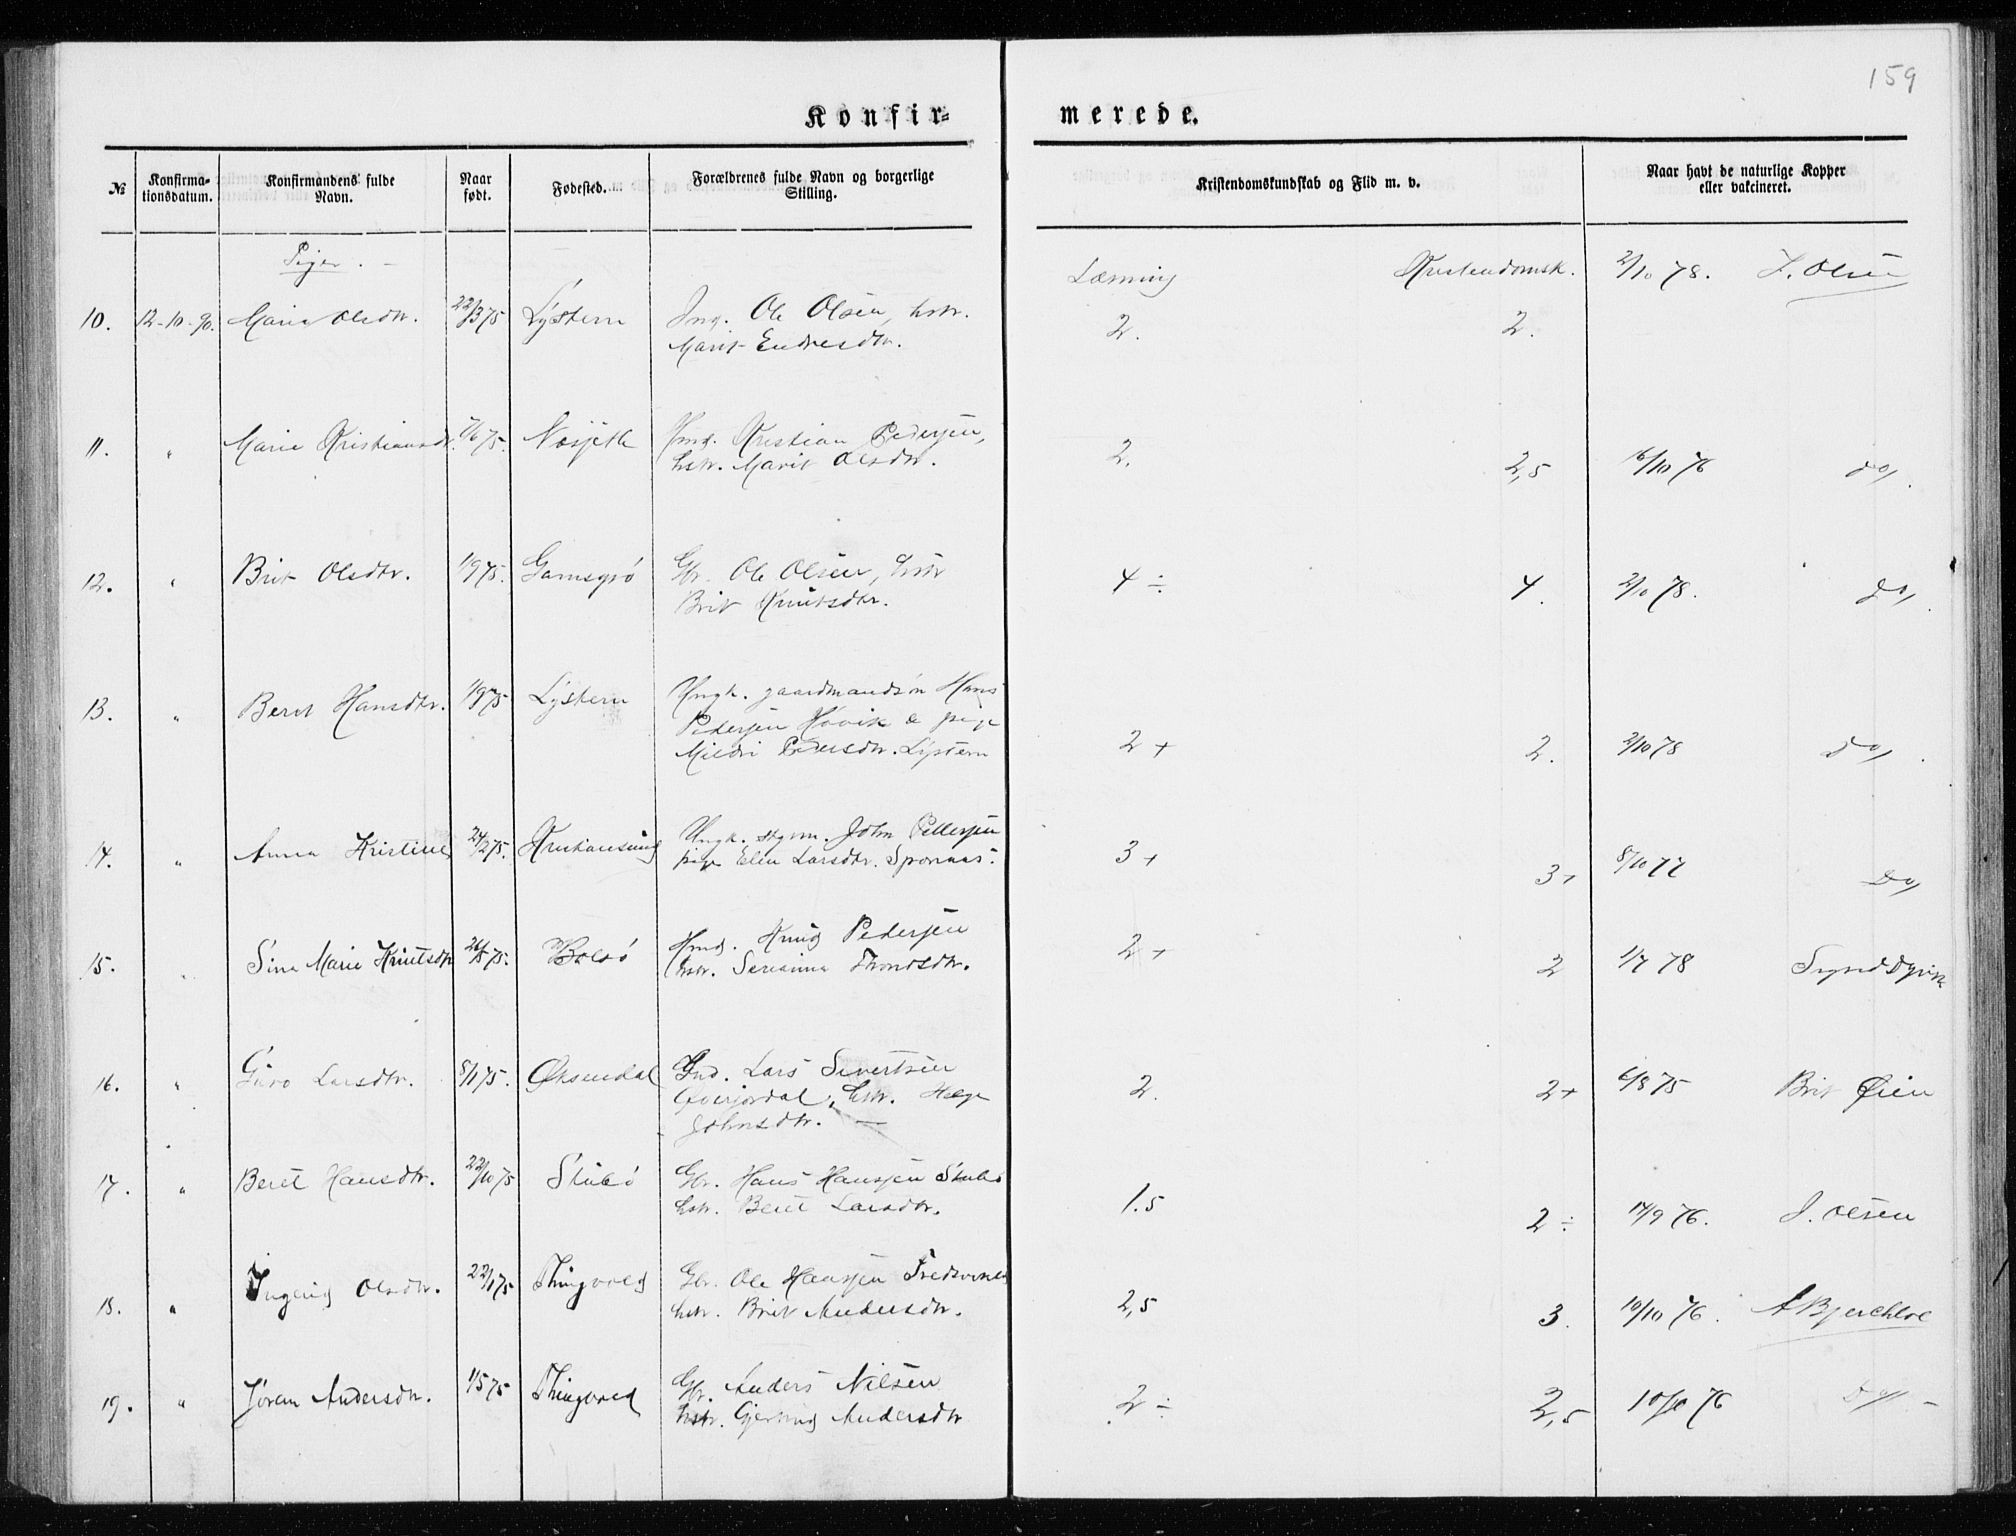 159
Konfir=
merede.
№
Konfirma-
tionsdatum.
Konfirmandens fulde
Navn.
Naar
født.
Fødested.
Forældrenes fulde Navn og borgerlige
Stilling.
Kristendomskundskab og Flid m. v.
Naar havt de naturlige Kopper
eller vakcineret.
Piger. -
Læsning
Kristendomsk.
10. 12-10-90. Marie Olsdtr. 22/3 75 Lystern Ole Olsen, hstr. 2. 2. 2/10 78. J. Olsen
Marit Endresdtr.
11. " Marie Kristiansdtr. 7/6 75. Kristian Pedersen, 2. 2,5 16/10 76 do,
hstr. Marit Olsdtr.
12. " Brit Olsdtr. 1/9 75. Gbr. Ole Olsen, hstr 4 ÷ 4. 2/10 78. do,
Brit Knutsdtr.
13. " Beret Hansdtr. 1/9 75 Lystern Ungk. gaardmandsøn Hans
Pedersen Høvik & pige 2+ 2. 2/10 78 do,
Mildri Pedersdtr. Lystern
14. " Anna Kristine 24/2 75. Kristiansund Ungk. John Pettersen 3+ 3+ 8/10 77 do,
pige Elen Larsdtr.
15. " Sina Marie Knutsdtr 26/5 75. Bolsø Knud Pedersen 2+ 2 1/7 78
hstr. Serianna Trondsdtr.
16. " Guro Larsdtr. 8/1 75. Øksendal Lars Sivertsen 2. 2+ 6/8 75 Brit Øien
hstr.
Johnsdtr. —
17. " Beret Hansdtr. 22/10 75 Stubø Gbr. Hans Hansen Stubø 1.5 2 ÷ 17/9 76. J. Olsen
hstr. Beret Larsdtr.
18. " Ingerid Olsdtr. 22/1 75 Thingvold Gbr. Ole Hansen 2,5 3. 10/10 76. A Bjerchloe
hstr. Brit Andersdtr.
19. " Jøren Andersdtr. 1/5 75 Thingvold Gbr. Anders Nilsen 2 ÷ 2,5 10/10 76 do/ -
hstr. Gjertrud Andersdtr